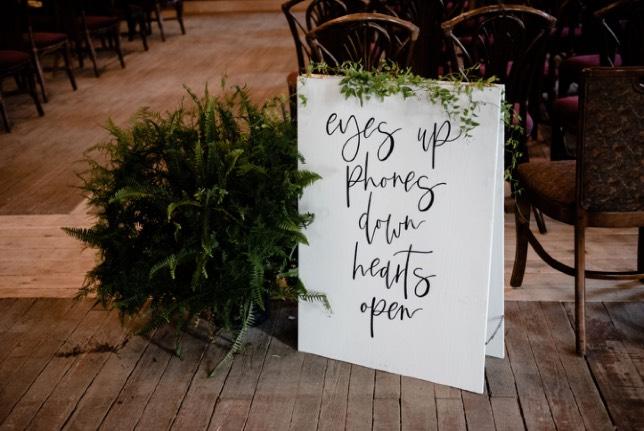 eyes up
phones
down
hearts
open